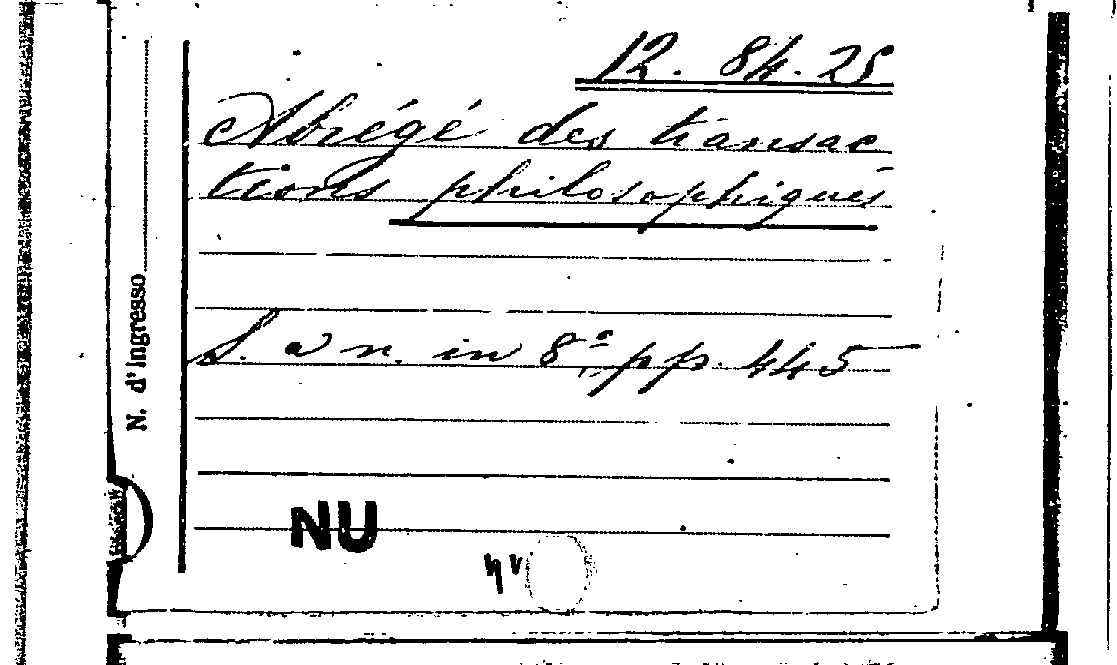 12. 84. 25
Abrégé des transac
tions philosophiques
S. a n. in 8º pp. 445
N. d'Ingresso
NU